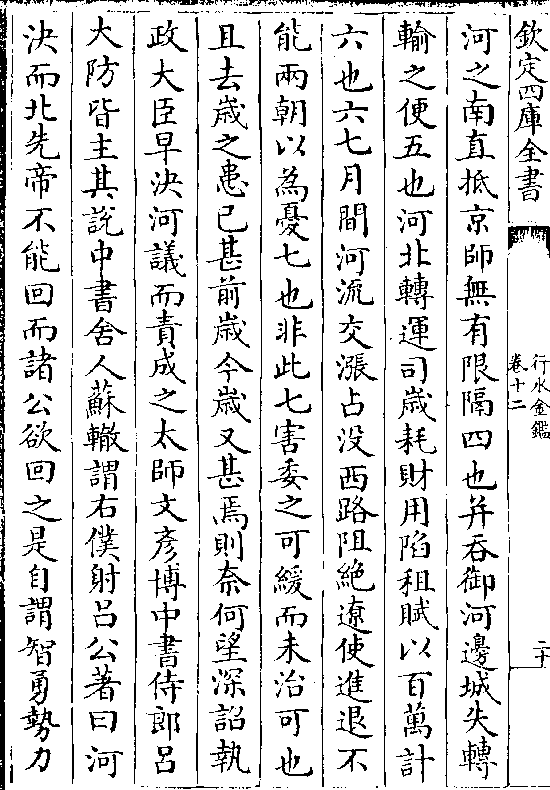 欽定四庫全書
行水金鑑
卷十二
二十
河之南直抵京師無有限隔四也并吞御河邊城失轉
輸之便五也河北轉運司歲耗財用陷租賦以百萬計
六也六七月間河流交漲占没西路阻絶遼使進退不
能兩朝以為憂七也非此七害委之可緩而未治可也
且去歲之患已甚前歲今歲又甚焉則奈何望深詔執
政大臣早決河議而責成之太師文彦博中書侍郎吕
大防皆主其說中書舍人蘇轍謂右僕射吕公著曰河
決而北先帝不能回而諸公欲回之是自謂智勇勢力